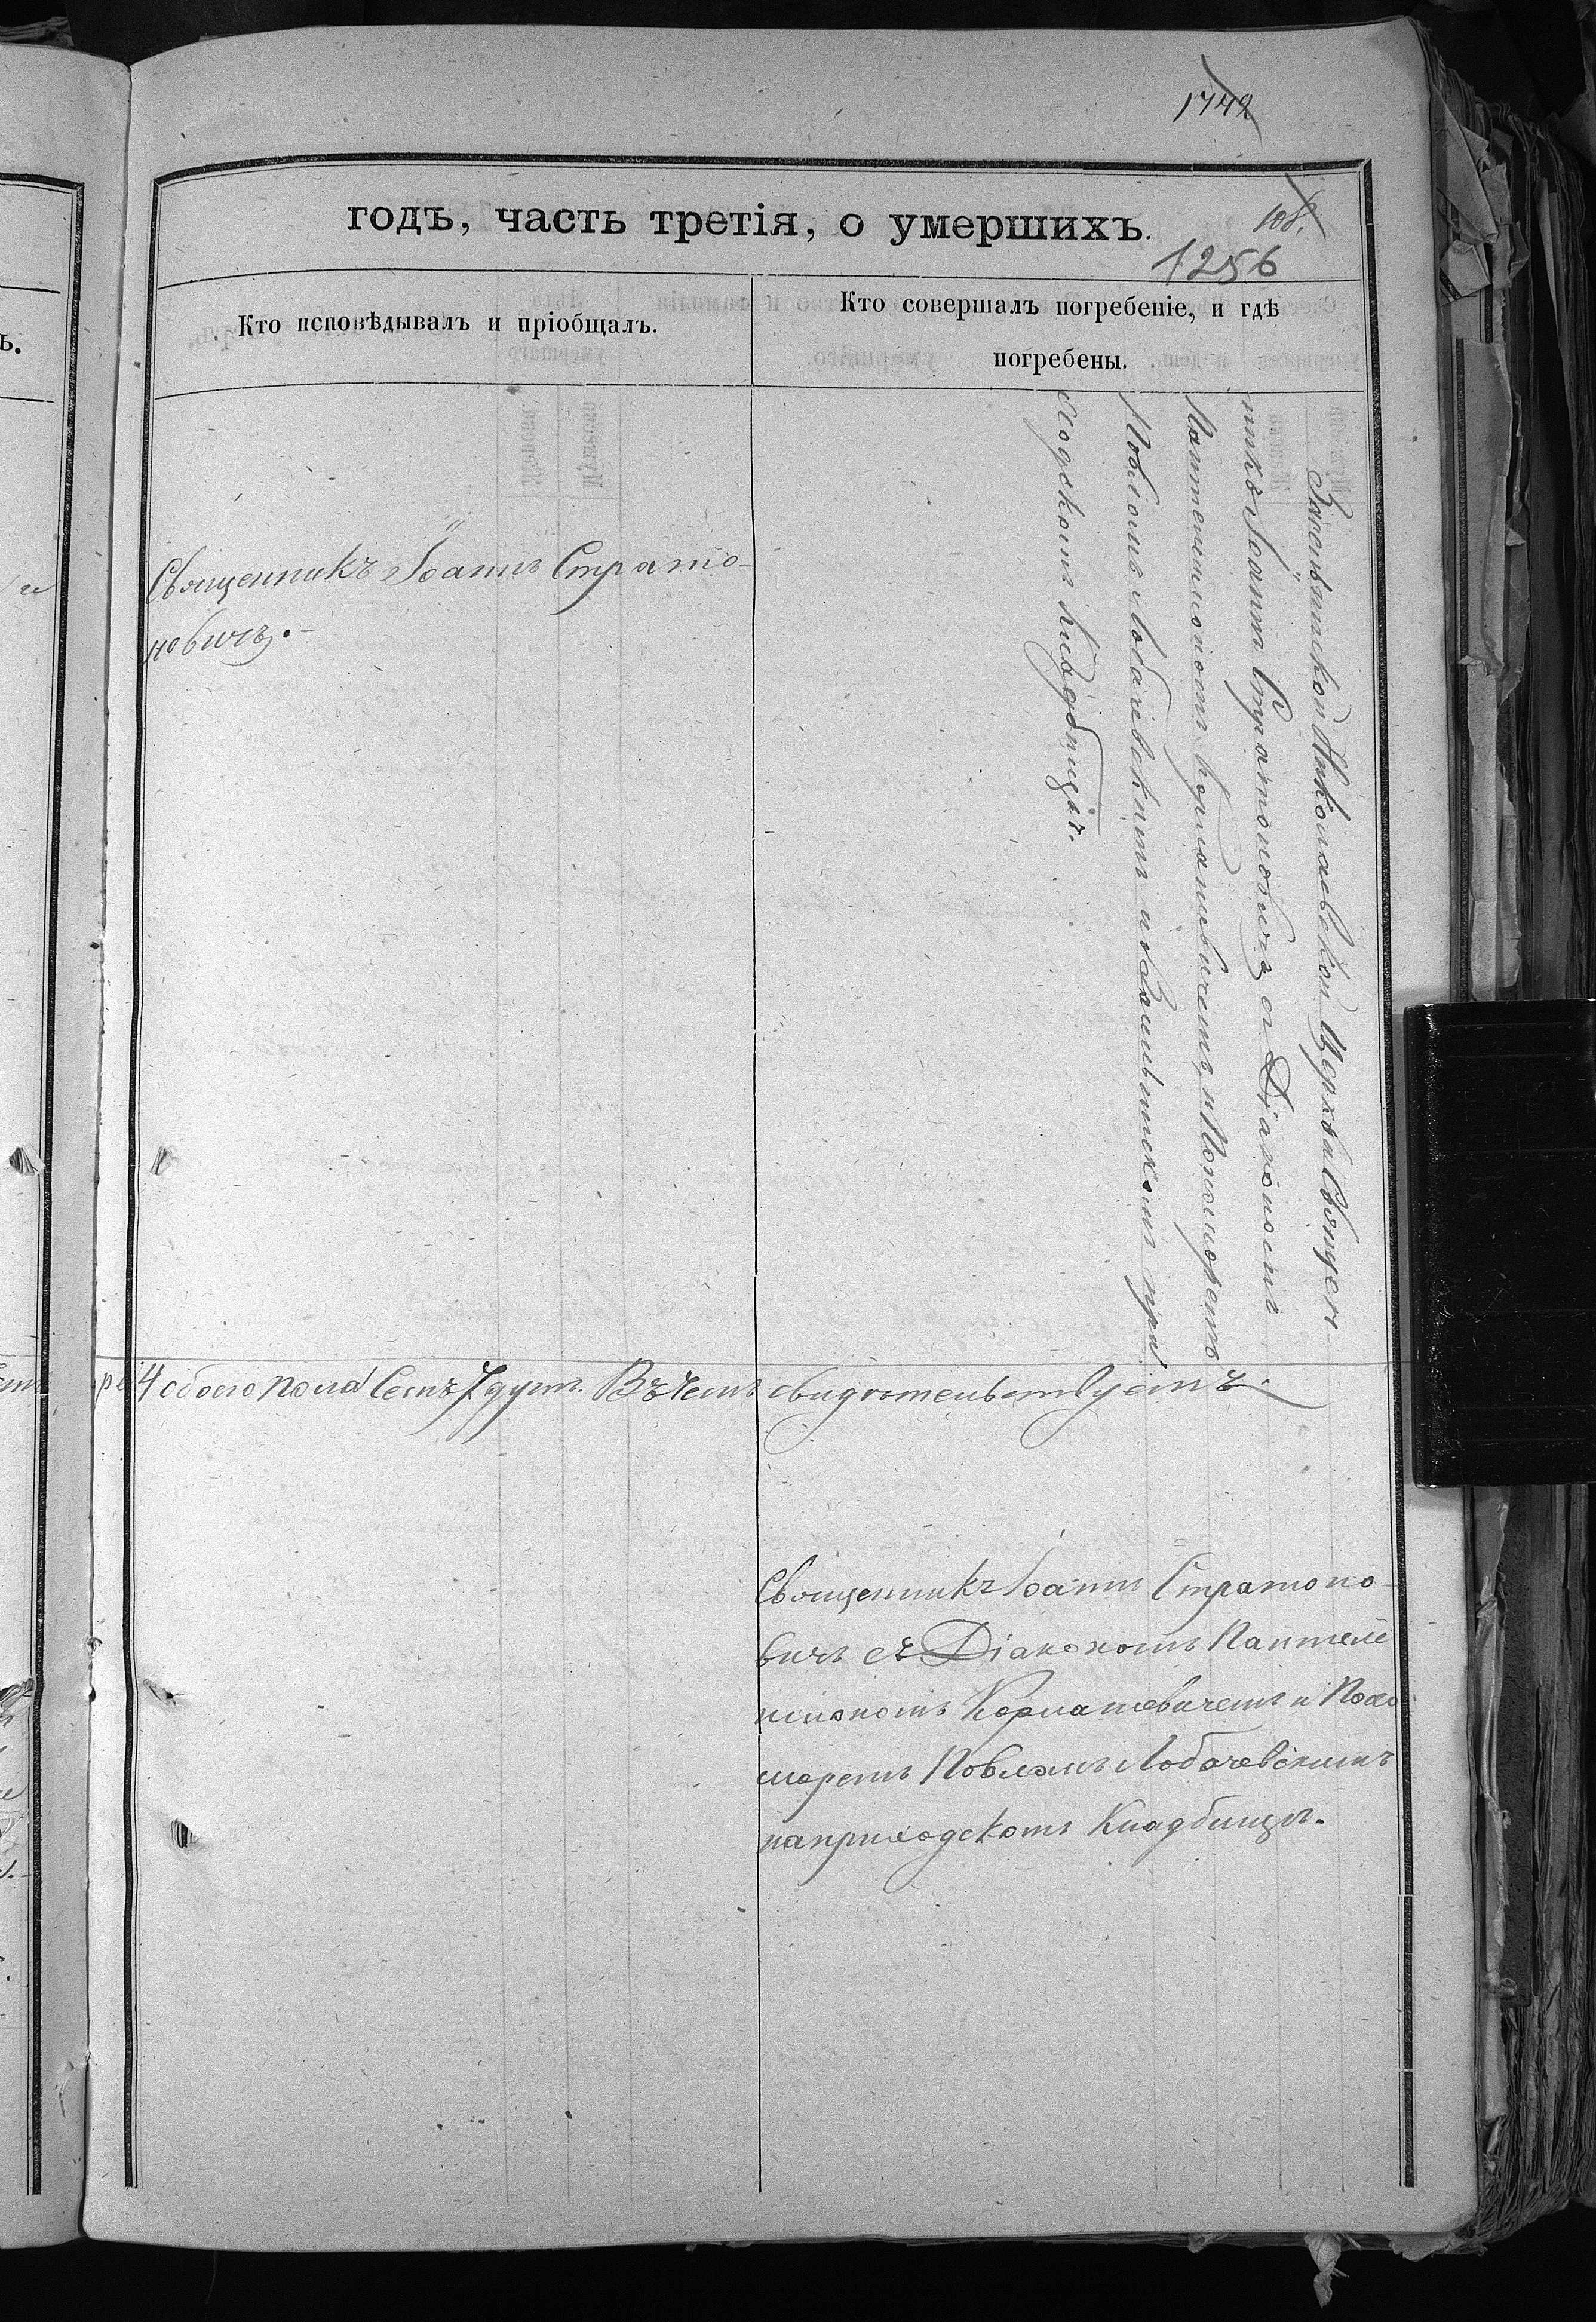 1742
годъ, часть третія, о умершихъ.
108.
1256
Кто исповѣдывалъ и пріобщалъ.
Кто совершалъ погребеніе, и гдѣ
погребены.
Священникъ Іоаннъ Страто-
новичъ.-
Николаевской Церкви Священ
никъ Іоаннъ Стратоновичъ съ Діакономъ
Пантелеимономъ Корнашевичемъ и Пономоремъ
Повломъ Лобачевскимъ при
ходскомъ Кладбищѣ.
4 обоего пола Семъ 7 душъ. Въ чемъ свидѣтельствуемъ.
Священникъ Іоаннъ Стратоно-
вичъ съ Діакономъ Пантелеи
мономъ Корнашевичемъ и Поно
моремъ Повломъ Лобачевскимъ
наприходскомъ Кладбищѣ.